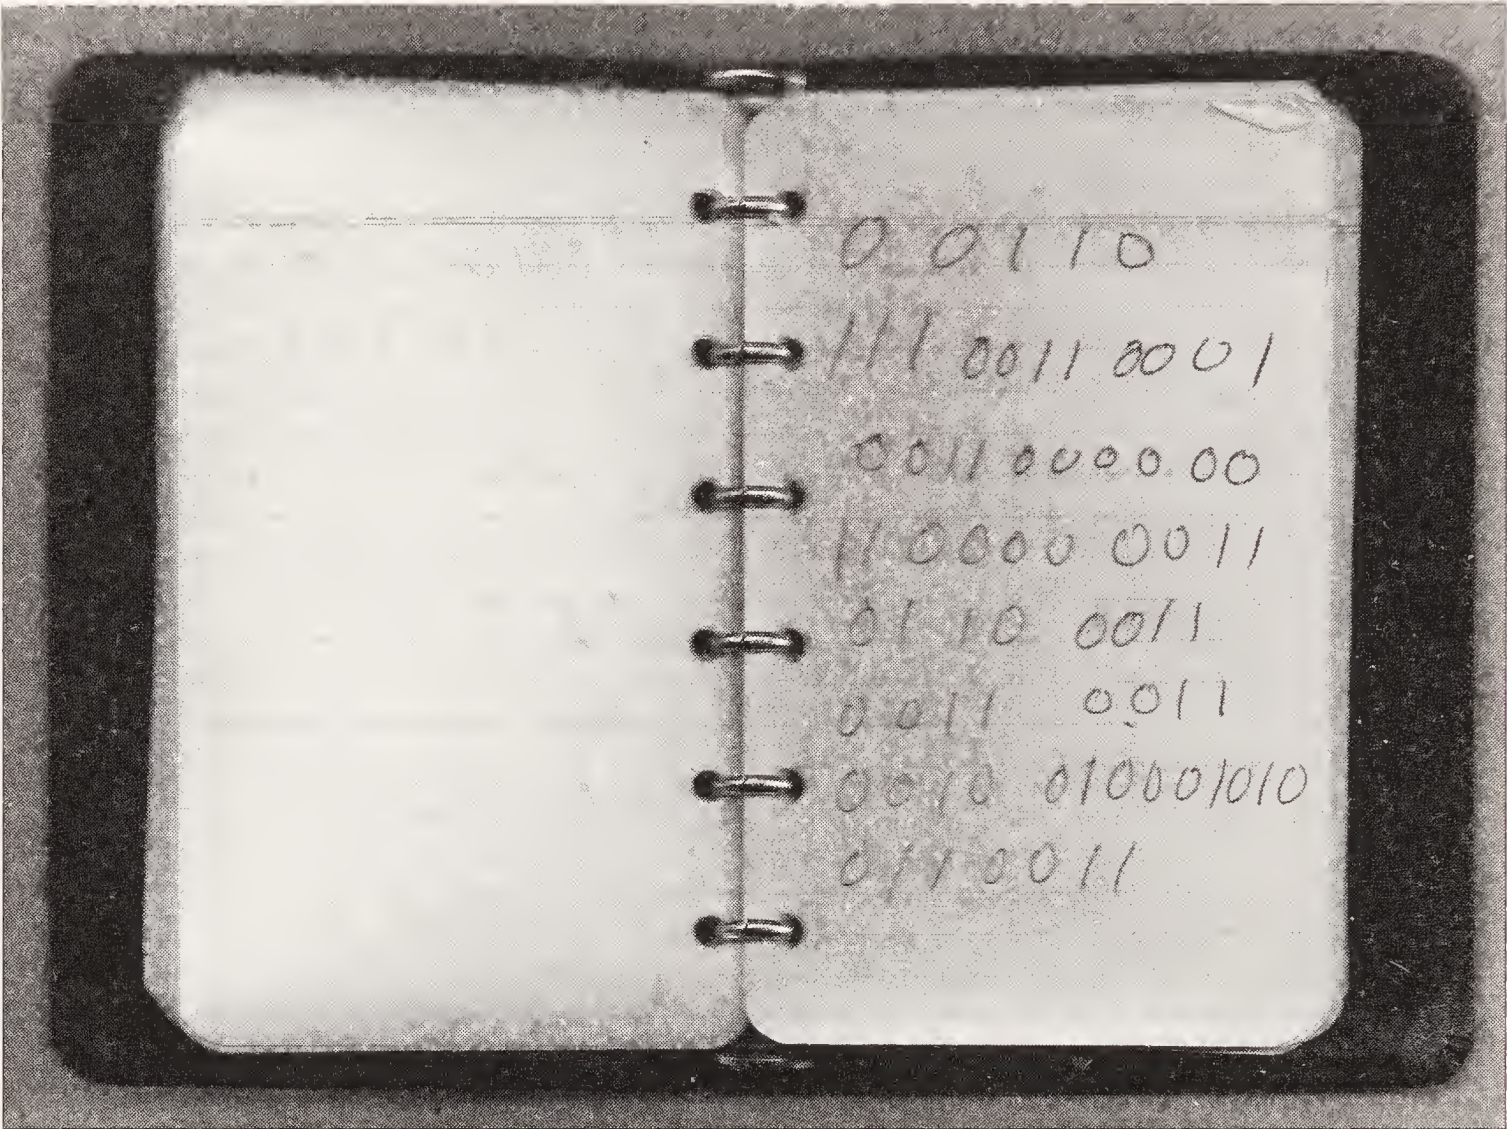 0 0 1 1 0
111 0011 000 1
0011 0000 00
11 0000 0011
01 10 0011
0011 0011
0010 010001010
0110011